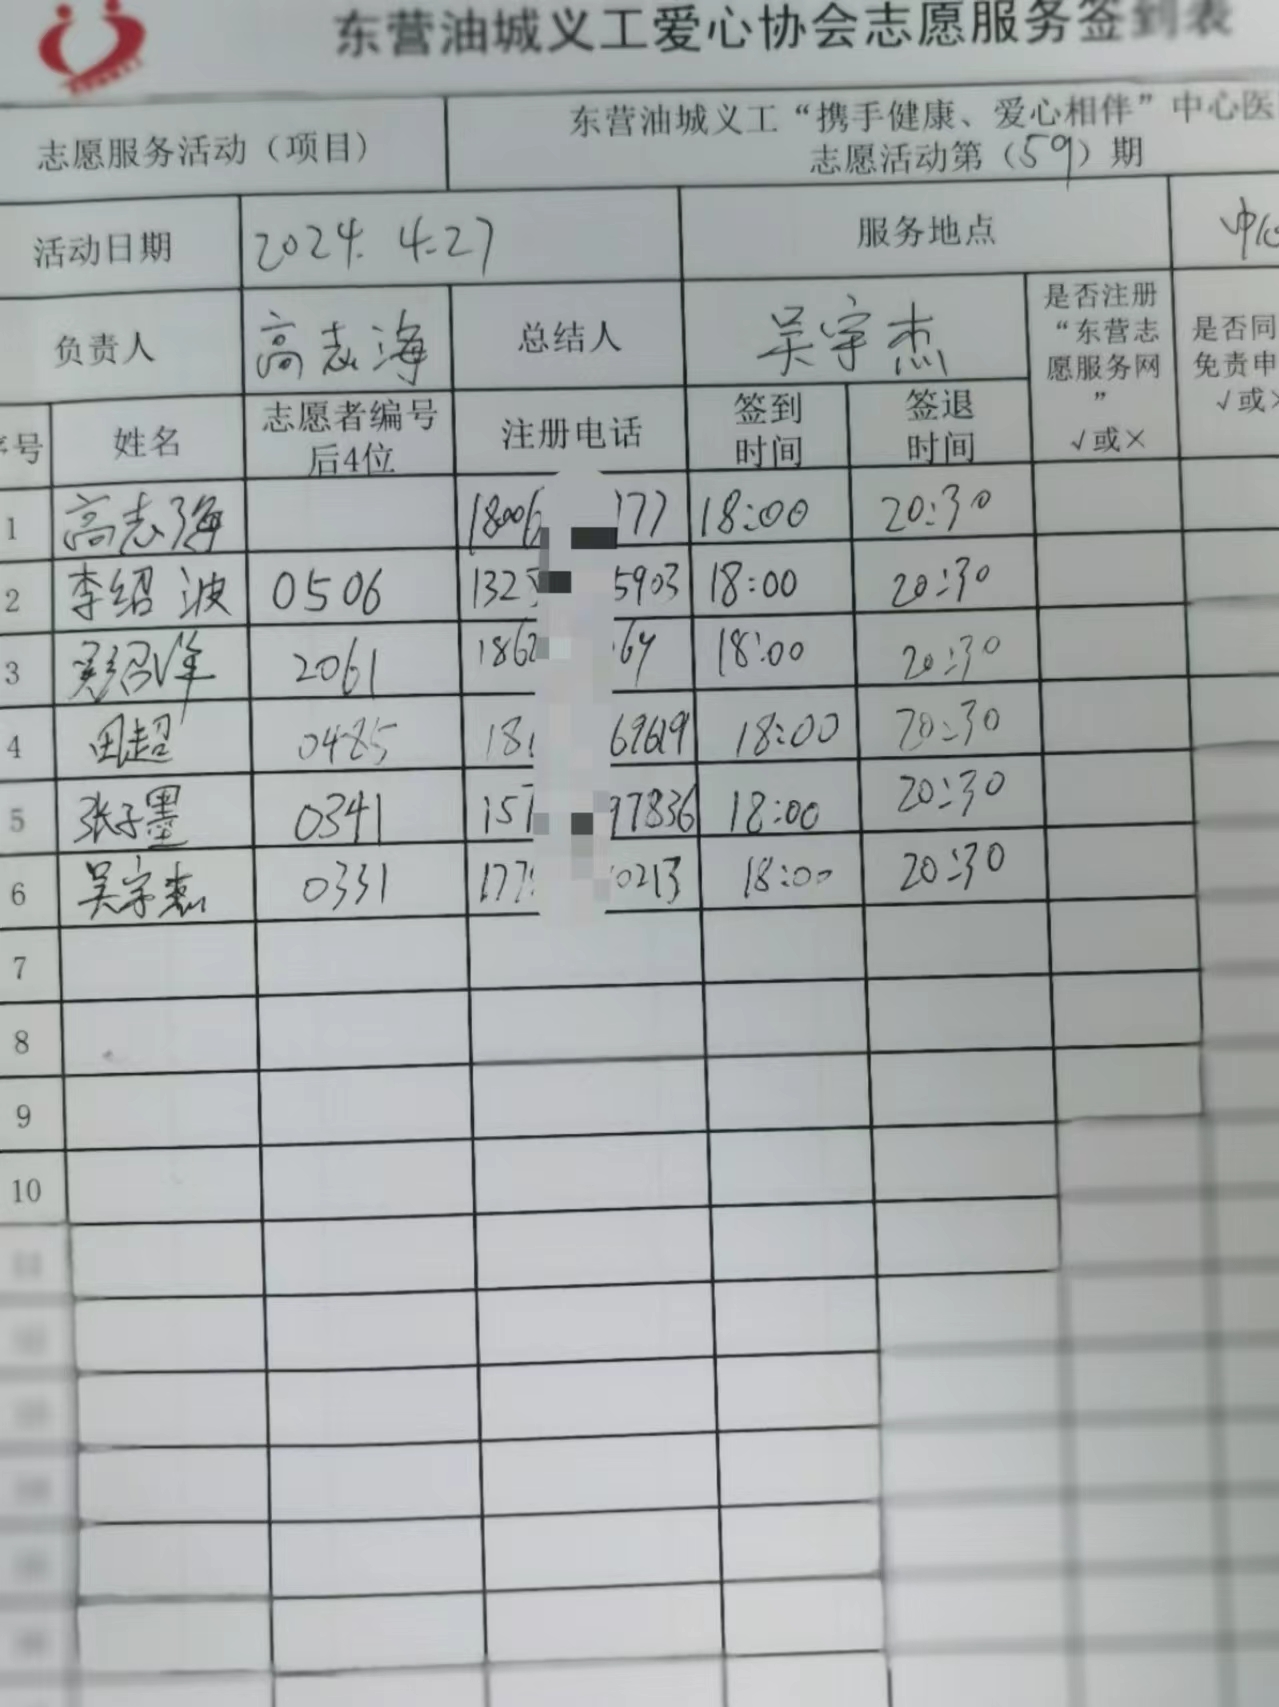 东营油城义工爱心协会志愿服务签到表
志愿服务活动（项目） 东营油城义工“携手健康、爱心相伴”中心医
志愿活动第（59）期
活动日期 2024.4.27 服务地点 中心
负责人 高志海 总结人 吴宇杰 是否注册“东营志愿服务网” √或× 是否同 免责申 √或×
序号 姓名 志愿者编号后4位 注册电话 签到时间 签退时间
1 高志海 1800 177 18:00 20:30
2 李绍波 0506 132 5903 18:00 20:30
3 绍 2061 186 64 18:00 20:30
4 田超 0485 18 69619 18:00 20:30
5 张子墨 0341 157 97836 18:00 20:30
6 吴宇杰 0331 177 0213 18:00 20:30
7
8
9
10